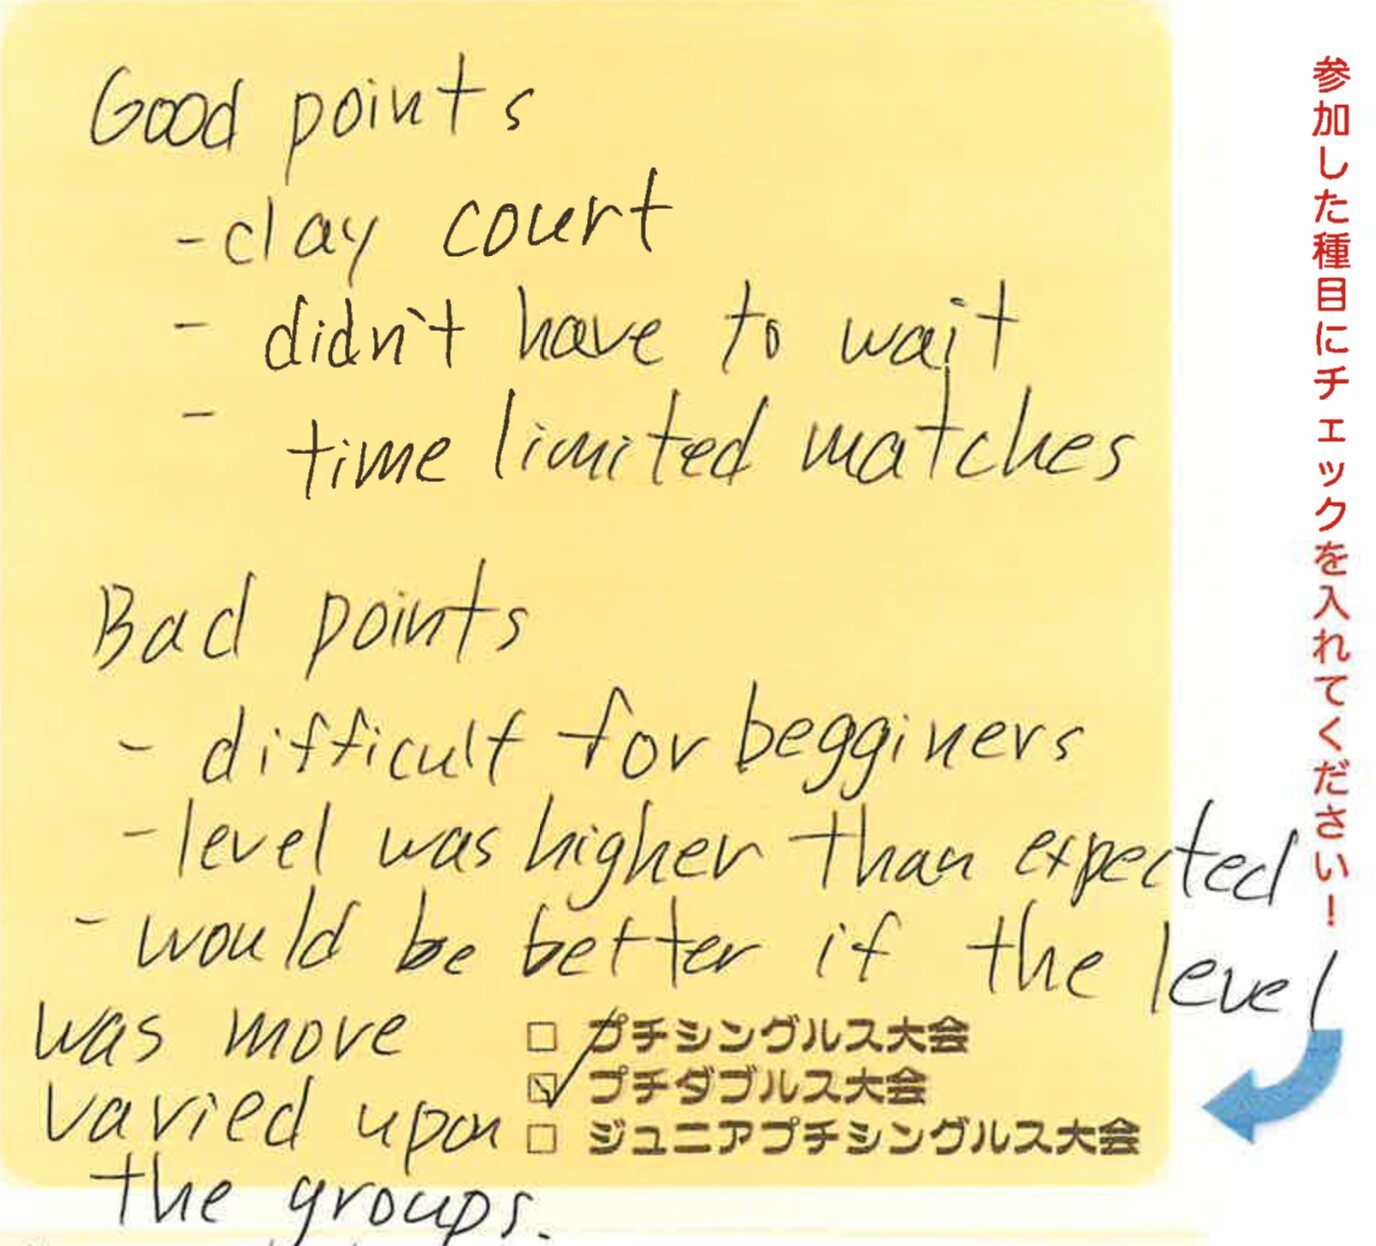 Good points
- clay court
- didn't have to wait
- time limited matches
Bad points
- difficult for begginers
- level was higher than expected
- would be better if the level
was more
varied upon
the groups.
□ プチシングルス大会
☑ プチダブルス大会
□ ジュニアプチシングルス大会
参加した種目にチェックを入れてください!